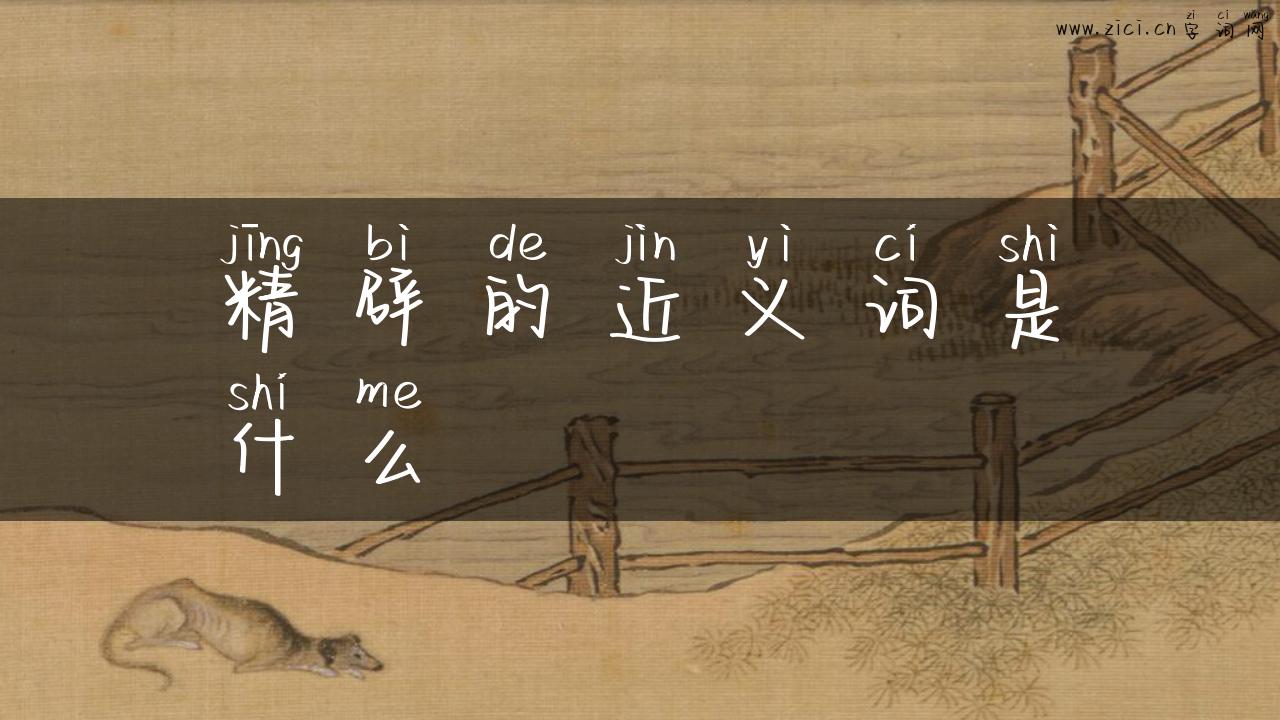 zì cí wǎng
www.zici.cn 字词网
jīng bì de jìn yì cí shì
精辟的近义词是
shí me
什么